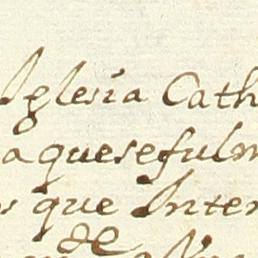 Iglesia Cath
aquesefulm
s que Inter
de